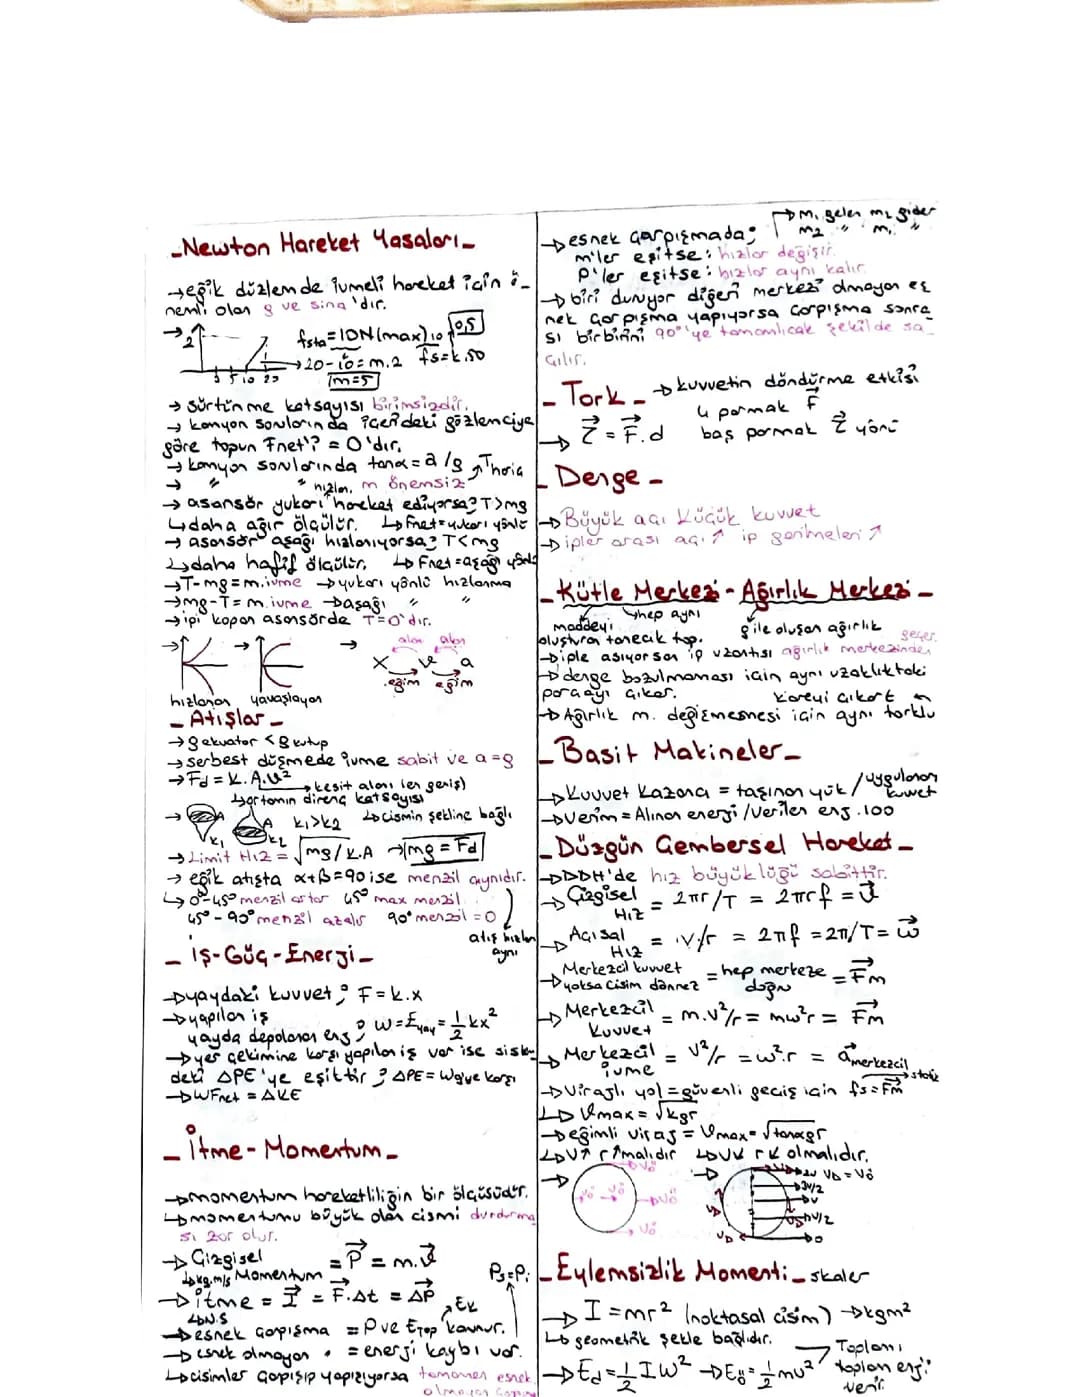 _Newton Hareket Yasaları_
→eğik düzlemde ivmeli hareket için ö-
nemli olan g ve sina 'dır.
→2
fsta=10N(max) 10 0,5
→20-10=m.2 fs=k.50
5 10 20 m=5
→ sürtünme katsayısı birimsizdir.
→ kamyon sorularında içerideki gözlemciye
göre topun Fnet'? = 0'dır.
→ kamyon sorularında tanα=a/g Thoria
→ " " hızlan, m önemsiz
→ asansör yukarı hareket ediyorsa? T>mg
↳daha ağır ölçülür. ↳Fnet=yukarı yönlü
→ asansör aşağı hızlanıyorsa? T<mg
↳daha hafif ölçülür. ↳ Fnet=aşağı yönlü
→T-mg=m.ivme →yukarı yönlü hızlanma
→mg-T=m.ivme →aşağı " "
→ipi kopan asansörde T=0'dır.
→ → → alan alan
x v a
eğim eğim
hızlanan yavaşlayan
_Atışlar_
→g ekvator < g kutup
→serbest düşmede ivme sabit ve a=g
→Fd=K.A.v²
→kesit alanı (en geniş)
↳ortamın direnç katsayısı
→ A A k1>k2 ↳cismin şekline bağlı
k1 k2
→Limit Hız = √mg/k.A →mg=Fd
→ eğik atışta α+β=90 ise menzil aynıdır.
↳0°-45° menzil artar 45° max menzil
45°-90° menzil azalır 90° menzil=0
atış hızları
aynı
_ iş-Güç-Enerji_
→yaydaki kuvvet ; F=k.x
→yapılan iş
yayda depolanan enj ; W=Eyay=1/2 kx²
→yer çekimine karşı yapılan iş var ise sistem
deki ΔPE'ye eşittir ; ΔPE=Wg'ye karşı
→WFnet = ΔKE
_ İtme-Momentum_
→momentum hareketliliğin bir ölçüsüdür.
↳momentumu büyük olan cismi durdurma
sı zor olur.
→Çizgisel
Momentum = P = m.v
↳kg.m/s
→itme = I = F.Δt = ΔP
↳N.s
→esnek çarpışma = P ve Etop korunur. Ek Ps=Pi
→esnek olmayan " = enerji kaybı var.
↳cisimler çarpışıp yapışıyorsa tamamen esnek
olmayan
→esnek çarpışmada; →m1 gelen m2 gider
m2 " m1 "
m'ler eşitse: hızlar değişir.
P'ler eşitse: hızlar aynı kalır
→biri duruyor diğeri merkezi olmayan es
nek çarpışma yapıyorsa çarpışma sonra
sı birbirini 90°'ye tamamlıcak şekilde sa
çılır.
_ Tork _ →kuvvetin döndürme etkisi
→ τ = F.d 4 parmak F
baş parmak τ yönü
_ Denge _
→Büyük açı küçük kuvvet
→ipler arası açı ↑ ip gerilmeleri ↑
_Kütle Merkezi - Ağırlık Merkezi _
maddeyi ↳hep aynı g ile oluşan ağırlık
oluşturan tanecik top.
→iple asıyorsan ip uzantısı ağırlık merkezinden geçer.
→denge bozulmaması için aynı uzaklıktaki
parçayı çıkar. kareyi çıkart
→Ağırlık m. değişmemesi için aynı torklu
_Basit Makineler_
→Kuvvet kazancı = taşınan yük / uygulanan kuvvet
→Verim = Alınan enerji /Verilen enj .100
_Düzgün Çembersel Hareket_
→DÇH'de hız büyüklüğü sabittir.
→Çizgisel
Hız = 2πr/T = 2πrf = v
→Açısal
Hız = v/r = 2πf = 2π/T = ω
→Merkezcil kuvvet
yoksa cisim dönmez = hep merkeze doğru = Fm
→Merkezcil
kuvvet = m.v²/r = mω²r = Fm
→Merkezcil
ivme = v²/r = ω².r = a merkezcil
→Virajlı yol = güvenli geçiş için fs=Fm →statik
↳Vmax = √kgr
→eğimli viraj = Vmax = √tanαgr
↳V↑ r↑malıdır ↳V↓ r↓ olmalıdır.
→ Vö →2v VD=Vö
Vö Vö Vö 3v/2
v
VD v/2
Vö VD 0
_Eylemsizlik Momenti_ skaler
→ I=mr² (noktasal cisim) →kgm²
↳ geometrik şekle bağlıdır.
→Ed=1/2 Iω² →Eö=1/2 mv² Toplamı
toplam enj'i
verir